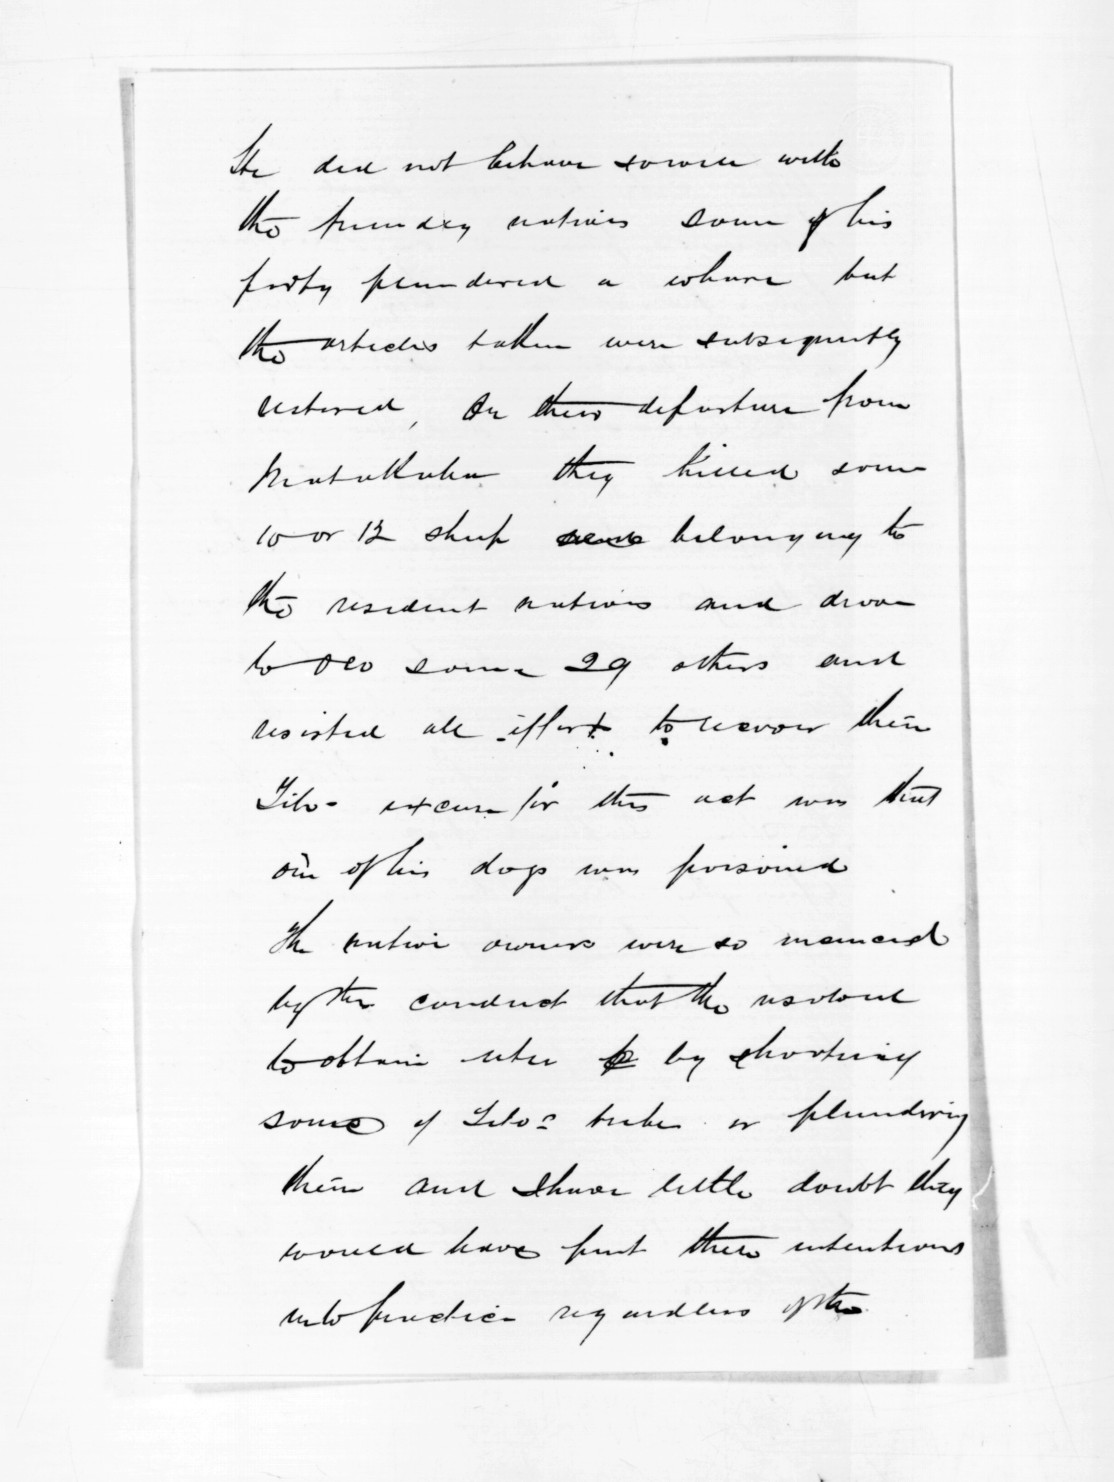 He did not behave so well with
the friendly natives some of his
party plundered a whare but
the articles taken were subsequently
restored, On their departure from
Matakuhia they killed some
10 or 12 sheep belonging to
the resident natives and drove
to some 29 others and
resisted all effort to recover them
Tito's excuse for this act was that
one of his dogs was poisoned
The native owners were so incensed
by the conduct that the resolved
to obtain utu by shooting
some of Tito's tribe or plundering
them and I have little doubt they
would have put their intentions
into practice regardless of the